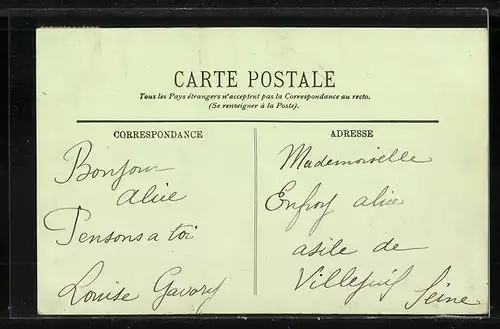 CARTE POSTALE
Tous les Pays étrangers n'acceptent pas la Correspondance au recto.
(Se renseigner à la Poste).
CORRESPONDANCE
Bonjour
alice
Pensons a toi
Louise Gavory
ADRESSE
Mademoiselle
Enfroy alice
asile de
Villejuif Seine